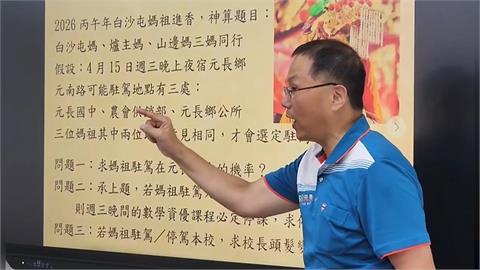 2026 丙午年白沙屯媽祖進香，神算題目：
白沙屯媽、爐主媽、山邊媽三媽同行
假設：4 月 15 日週三晚上夜宿元長鄉
元南路可能駐駕地點有三處：
元長國中、農會供銷部、元長鄉公所
三位媽祖其中兩位 見相同，才會選定駐
問題一：求媽祖駐駕在元 的機率？
問題二：承上題，若媽祖駐駕
則週三晚間的數學資優課程必定停課，求
問題三：若媽祖駐駕／停駕本校，求校長頭髮